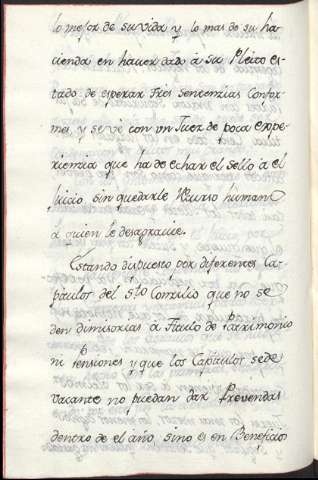 lo mejor de su vida y lo mas de su ha-
cienda en haver dado á su Pleito es-
tado de esperar tres sentenzias Confor-
mes, y se vé con un Juez de poca expe-
rienzia que ha de echar el sello á el
juicio sin quedarle recurso humano
á quien le desagravie.
Estando dispuesto por diferentes Ca-
pitulos del Sto Conzilio que no se
den dimisorias á Titulo de Patrimonio
ni Pensiones y que los Capitulos sede
vacante no puedan dar Prevendas
dentro de el año, sino es en Beneficios